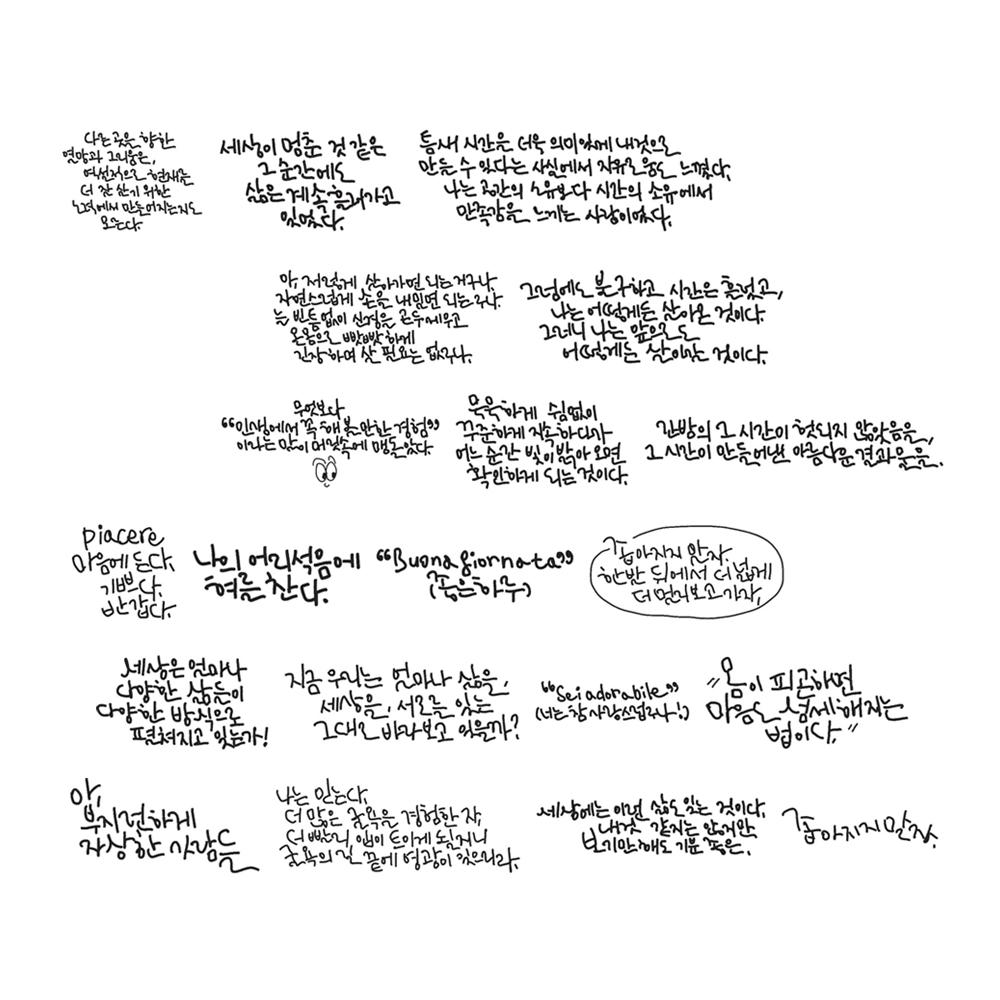 다른 곳을 향한
열망과 그리움은,
역설적으로 현재를
더 잘 살기 위한
노력에서 만들어지는지도
모른다.
세상이 멈춘 것 같은
그 순간에도
삶은 계속 흘러가고
있었다.
틈새 시간은 더욱 의미있게 내것으로
만들 수 있다는 사실에서 자유로움도 느꼈다.
나는 공간의 소유보다 시간의 소유에서
만족감을 느끼는 사람이었다.
아, 저렇게 살아가면 되는거구나.
자연스럽게 손을 내밀면 되는구나.
늘 빈틈없이 신경을 곤두세우고
온몸으로 빳빳하게
긴장하며 살 필요는 없구나.
그럼에도 불구하고 시간은 흘렀고,
나는 어떻게든 살아온 것이다.
그러니 나는 앞으로도
어떻게든 살아가는 것이다.
무엇보다
“인생에서 꼭 해볼만한 경험”
이라는 말이 머릿속에 맴돌았다.
묵묵하게 쉼없이
꾸준하게 지속하다가
어느 순간 빛이 밝아오면
확인하게 되는 것이다.
간밤의 그 시간이 헛되지 않았음을,
그 시간이 만들어낸 아름다운 결과물을.
piacere
마음에 든다.
기쁘다.
반갑다.
나의 어리석음에
혀를 찬다.
“Buona giornata”
(좋은하루)
좁아지지 말자.
한발 뒤에서 더 넓게
더 멀리보고가자.
세상은 얼마나
다양한 삶들이
다양한 방식으로
펼쳐지고 있는가!
지금 우리는 얼마나 삶을,
세상을, 서로를 있는
그대로 바라보고 있을까?
“Sei adorabile”
(너는 참 사랑스럽구나!)
"몸이 피곤하면
마음도 섬세해지는
법이다."
아,
부지런하게
자상한 사람들
나는 믿는다.
더 많은 굴욕을 경험한 자,
더 빨리, 입이 트이게 될지니
굴욕의 길 끝에 영광이 있으리라.
세상에는 이런 삶도 있는 것이다.
내것 같지는 않지만
보기만해도 기분 좋은.
좁아지지 말자.